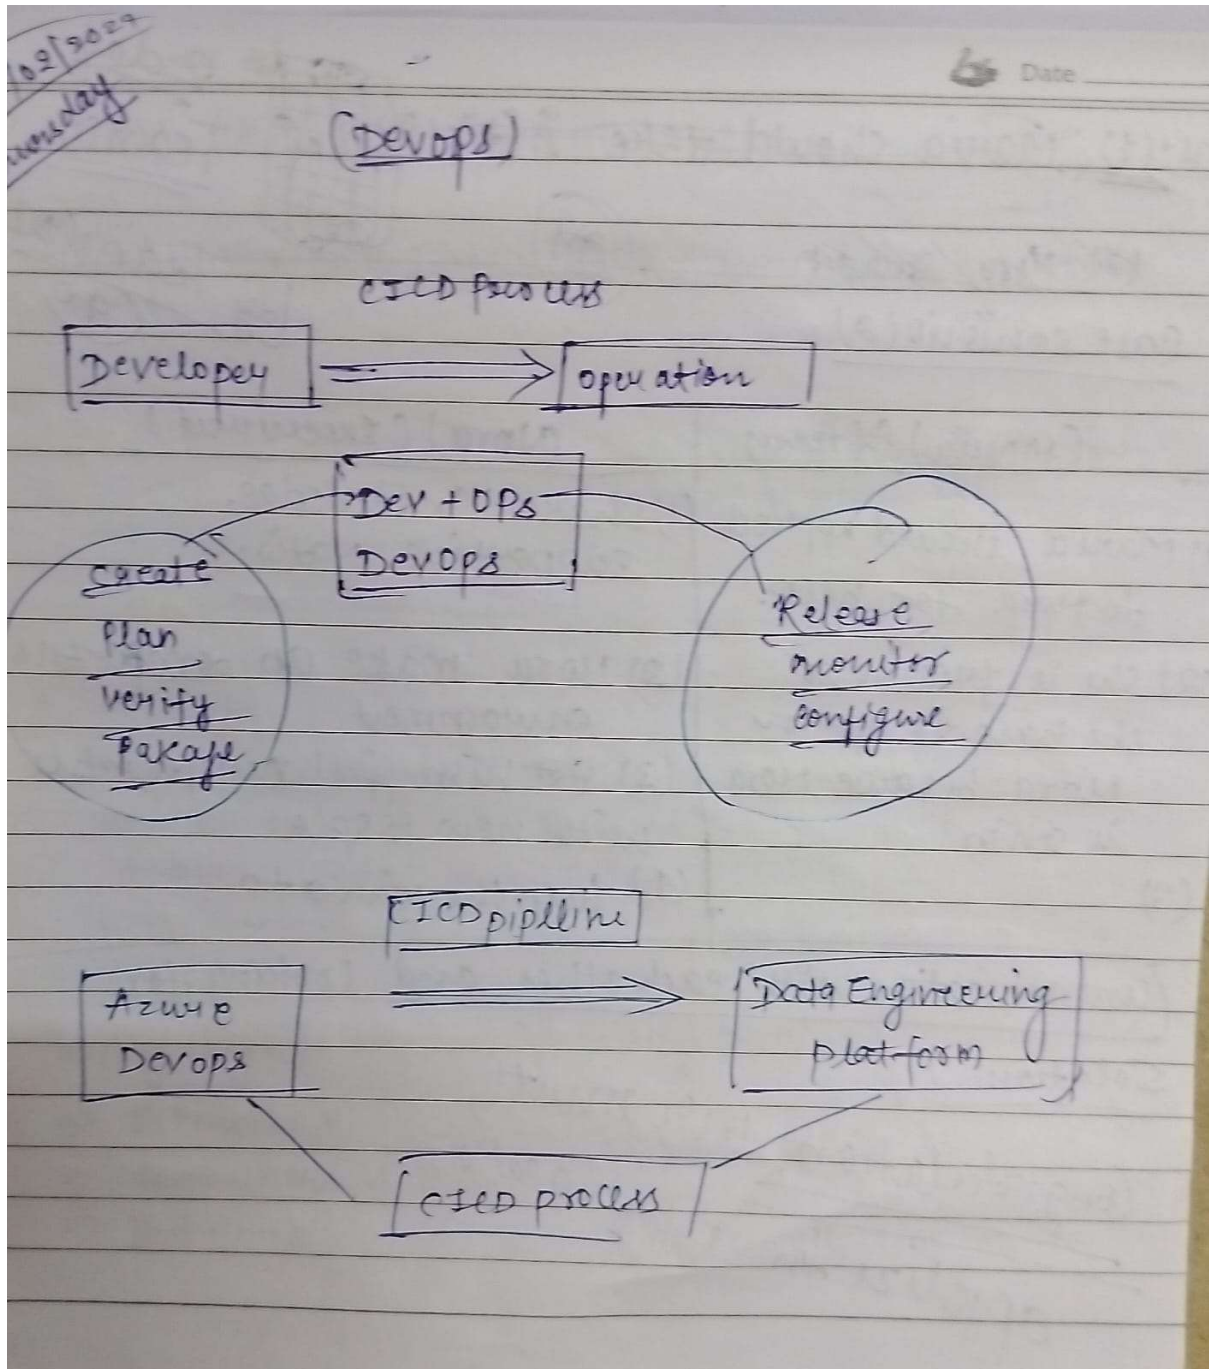 /02/2024
(Devops)
Date
CICD process
Developer
operation
Dev + OPs
Devops
create
Plan
verify
Pakage
Release
monitor
configure
CICD piplline
Azure
Devops
Data Engineering
platform
CICD process